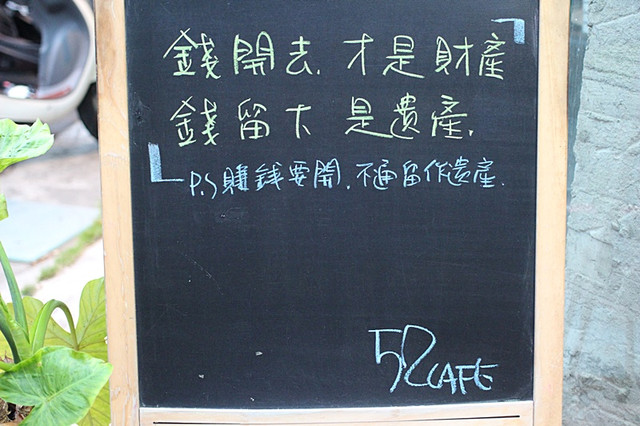 錢開去.才是財產
錢留下 是遺產.
P.S 賺錢要開.不通留作遺產.
52 CAFE